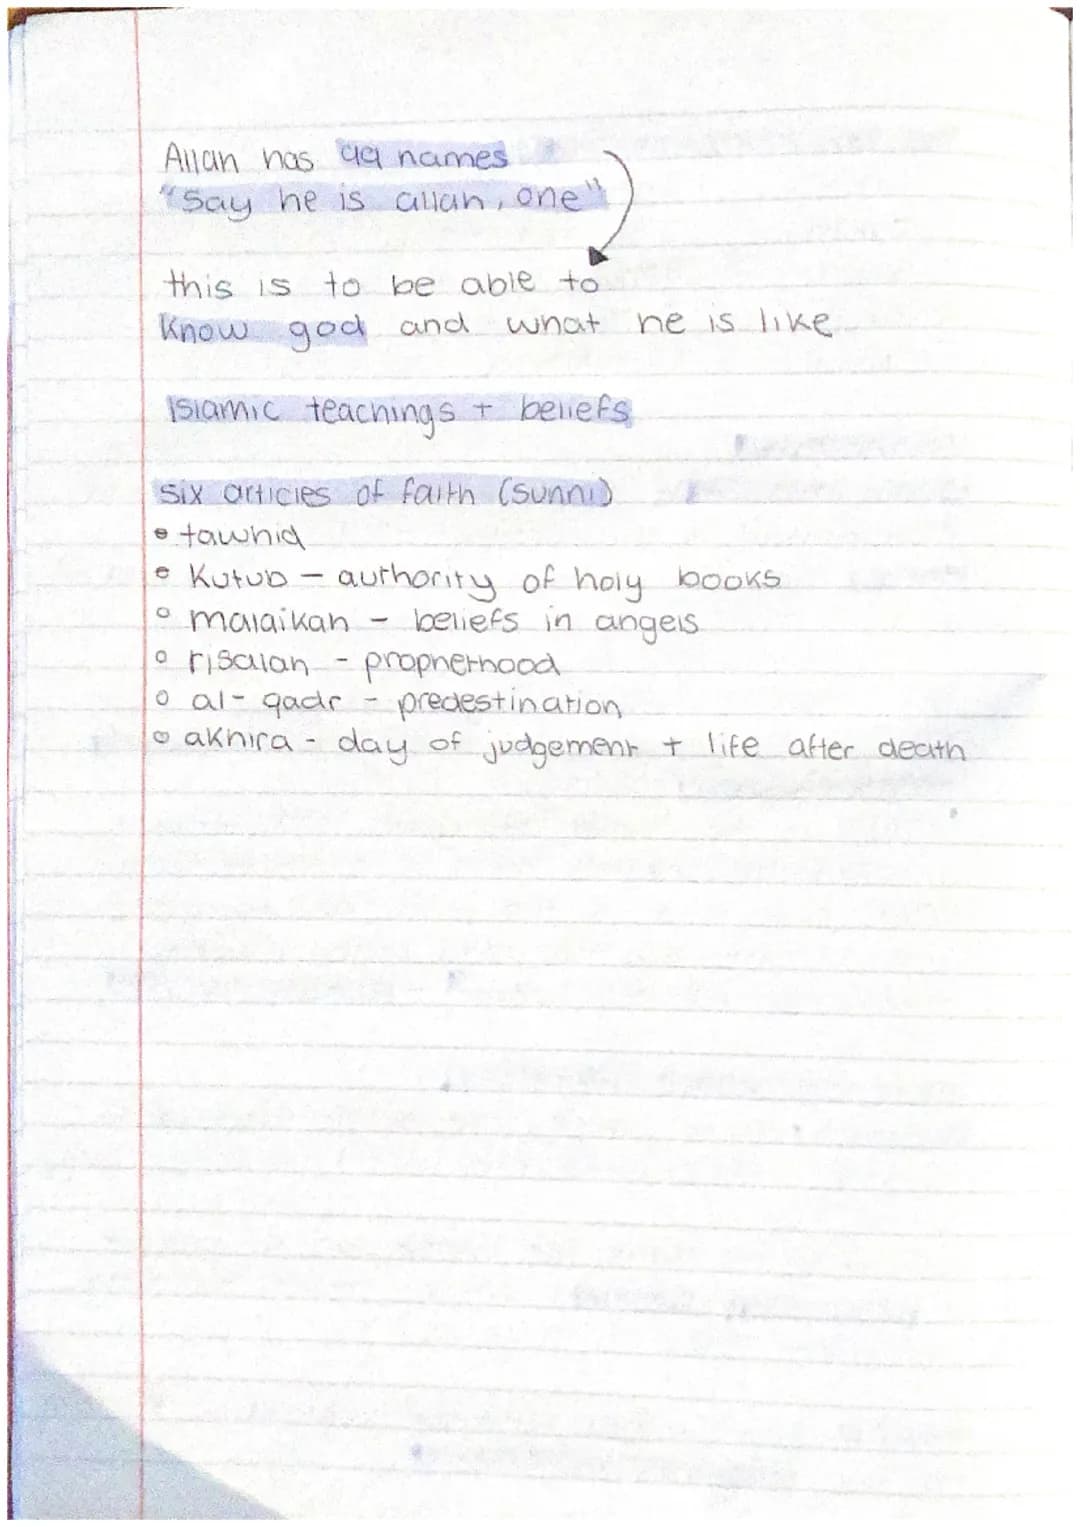 Allah has 99 names
"Say he is allah, one"
this is to be able to
Know god and what he is like
Islamic teachings + beliefs
six articles of faith (sunni)
• tawhid
• Kutub - authority of holy books
• malaikah - beliefs in angels
• risalah - prophethood
• al-qadr - predestination
• akhira - day of judgement + life after death